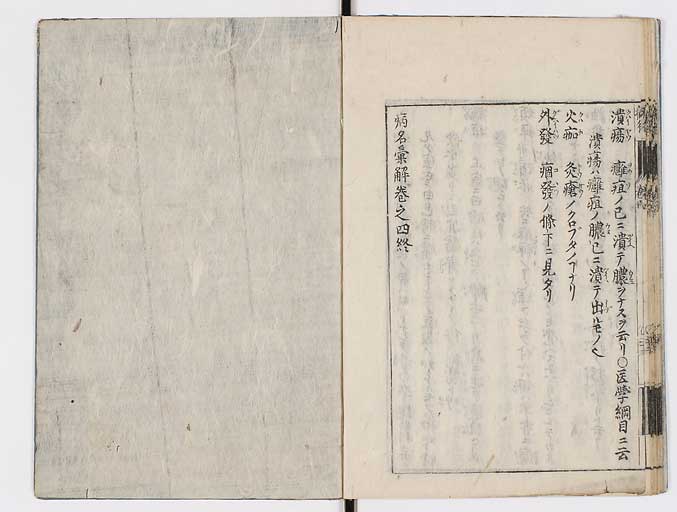 潰瘍 癰疽ノ已ニ潰テ膿ヲナスヲ云リ○医学綱目ニ云
潰瘍ハ癰疽ノ膿已ニ潰テ出ルモノ也
火痂 灸瘡ノクロブタノ丁ナリ
外發 癰發ノ條下ニ見タリ
病名彙解巻之四終